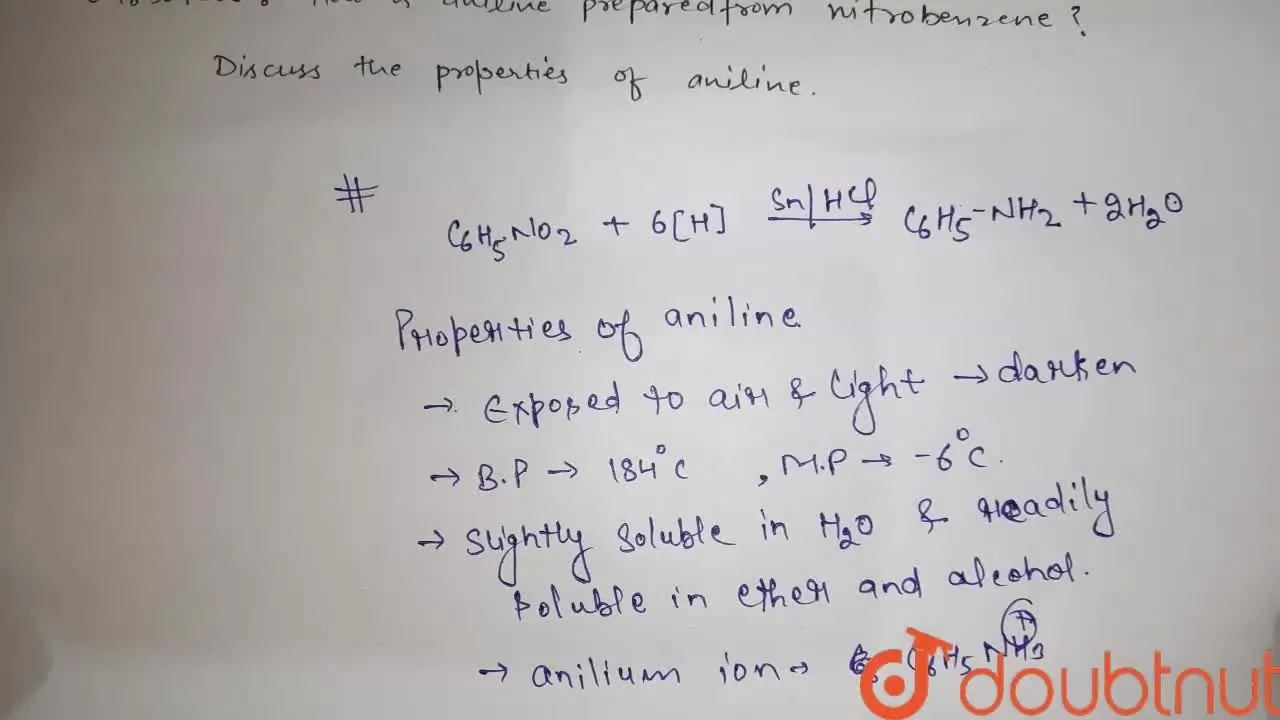 How is aniline prepared from nitrobenzene?
Discuss the properties of aniline.
#
C6H5NO2 + 6[H] Sn/HCl → C6H5-NH2 + 2H2O
Properties of aniline
→ Exposed to air & light → darken
→ B.P → 184°C , M.P → -6°C.
→ Slightly soluble in H2O & readily
soluble in ether and alcohol.
→ anilium ion → C6H5NH3 +
doubtnut